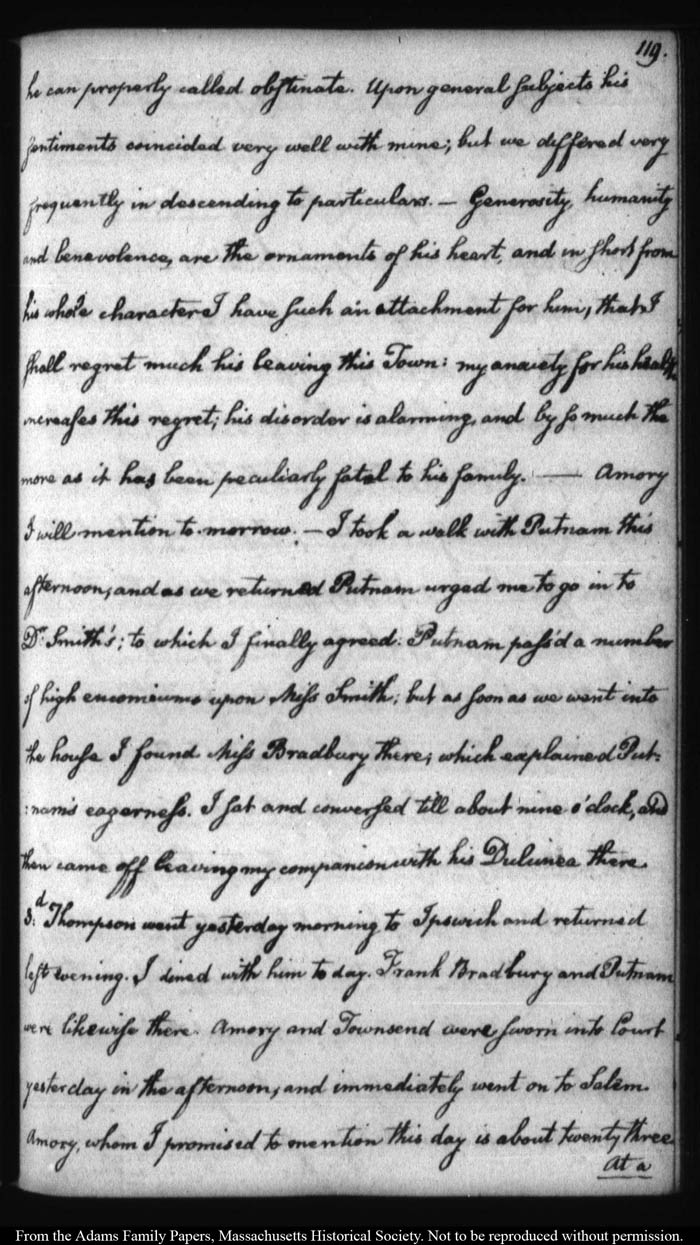 119.
he can properly called obstinate. Upon general subjects his
sentiments coincided very well with mine; but we differed very
frequently in descending to particulars. — Generosity, humanity
and benevolence, are the ornaments of his heart, and in short from
his whole character I have such an attachment for him, that I
shall regret much his leaving this Town: my anxiety for his health
increases this regret; his disorder is alarming, and by so much the
more as it has been peculiarly fatal to his family. — Amory
I will mention to-morrow. — I took a walk with Putnam this
afternoon, and as we returned Putnam urged me to go in to
Dr. Smith's; to which I finally agreed. Putnam pass'd a number
of high encomiums upon Miss Smith; but as soon as we went into
the house I found Miss Bradbury there; which explained Put-
:nam's eagerness. I sat and conversed till about nine o'clock, and
then came off leaving my companion with his Dulcinea there.
3.d Thompson went yesterday morning to Ipswich and returned
last evening. I dined with him to day. Frank Bradbury and Putnam
were likewise there. Amory and Townsend were sworn into Court
yesterday in the afternoon, and immediately went on to Salem.
Amory, whom I promised to mention this day is about twenty three.
At a
From the Adams Family Papers, Massachusetts Historical Society. Not to be reproduced without permission.